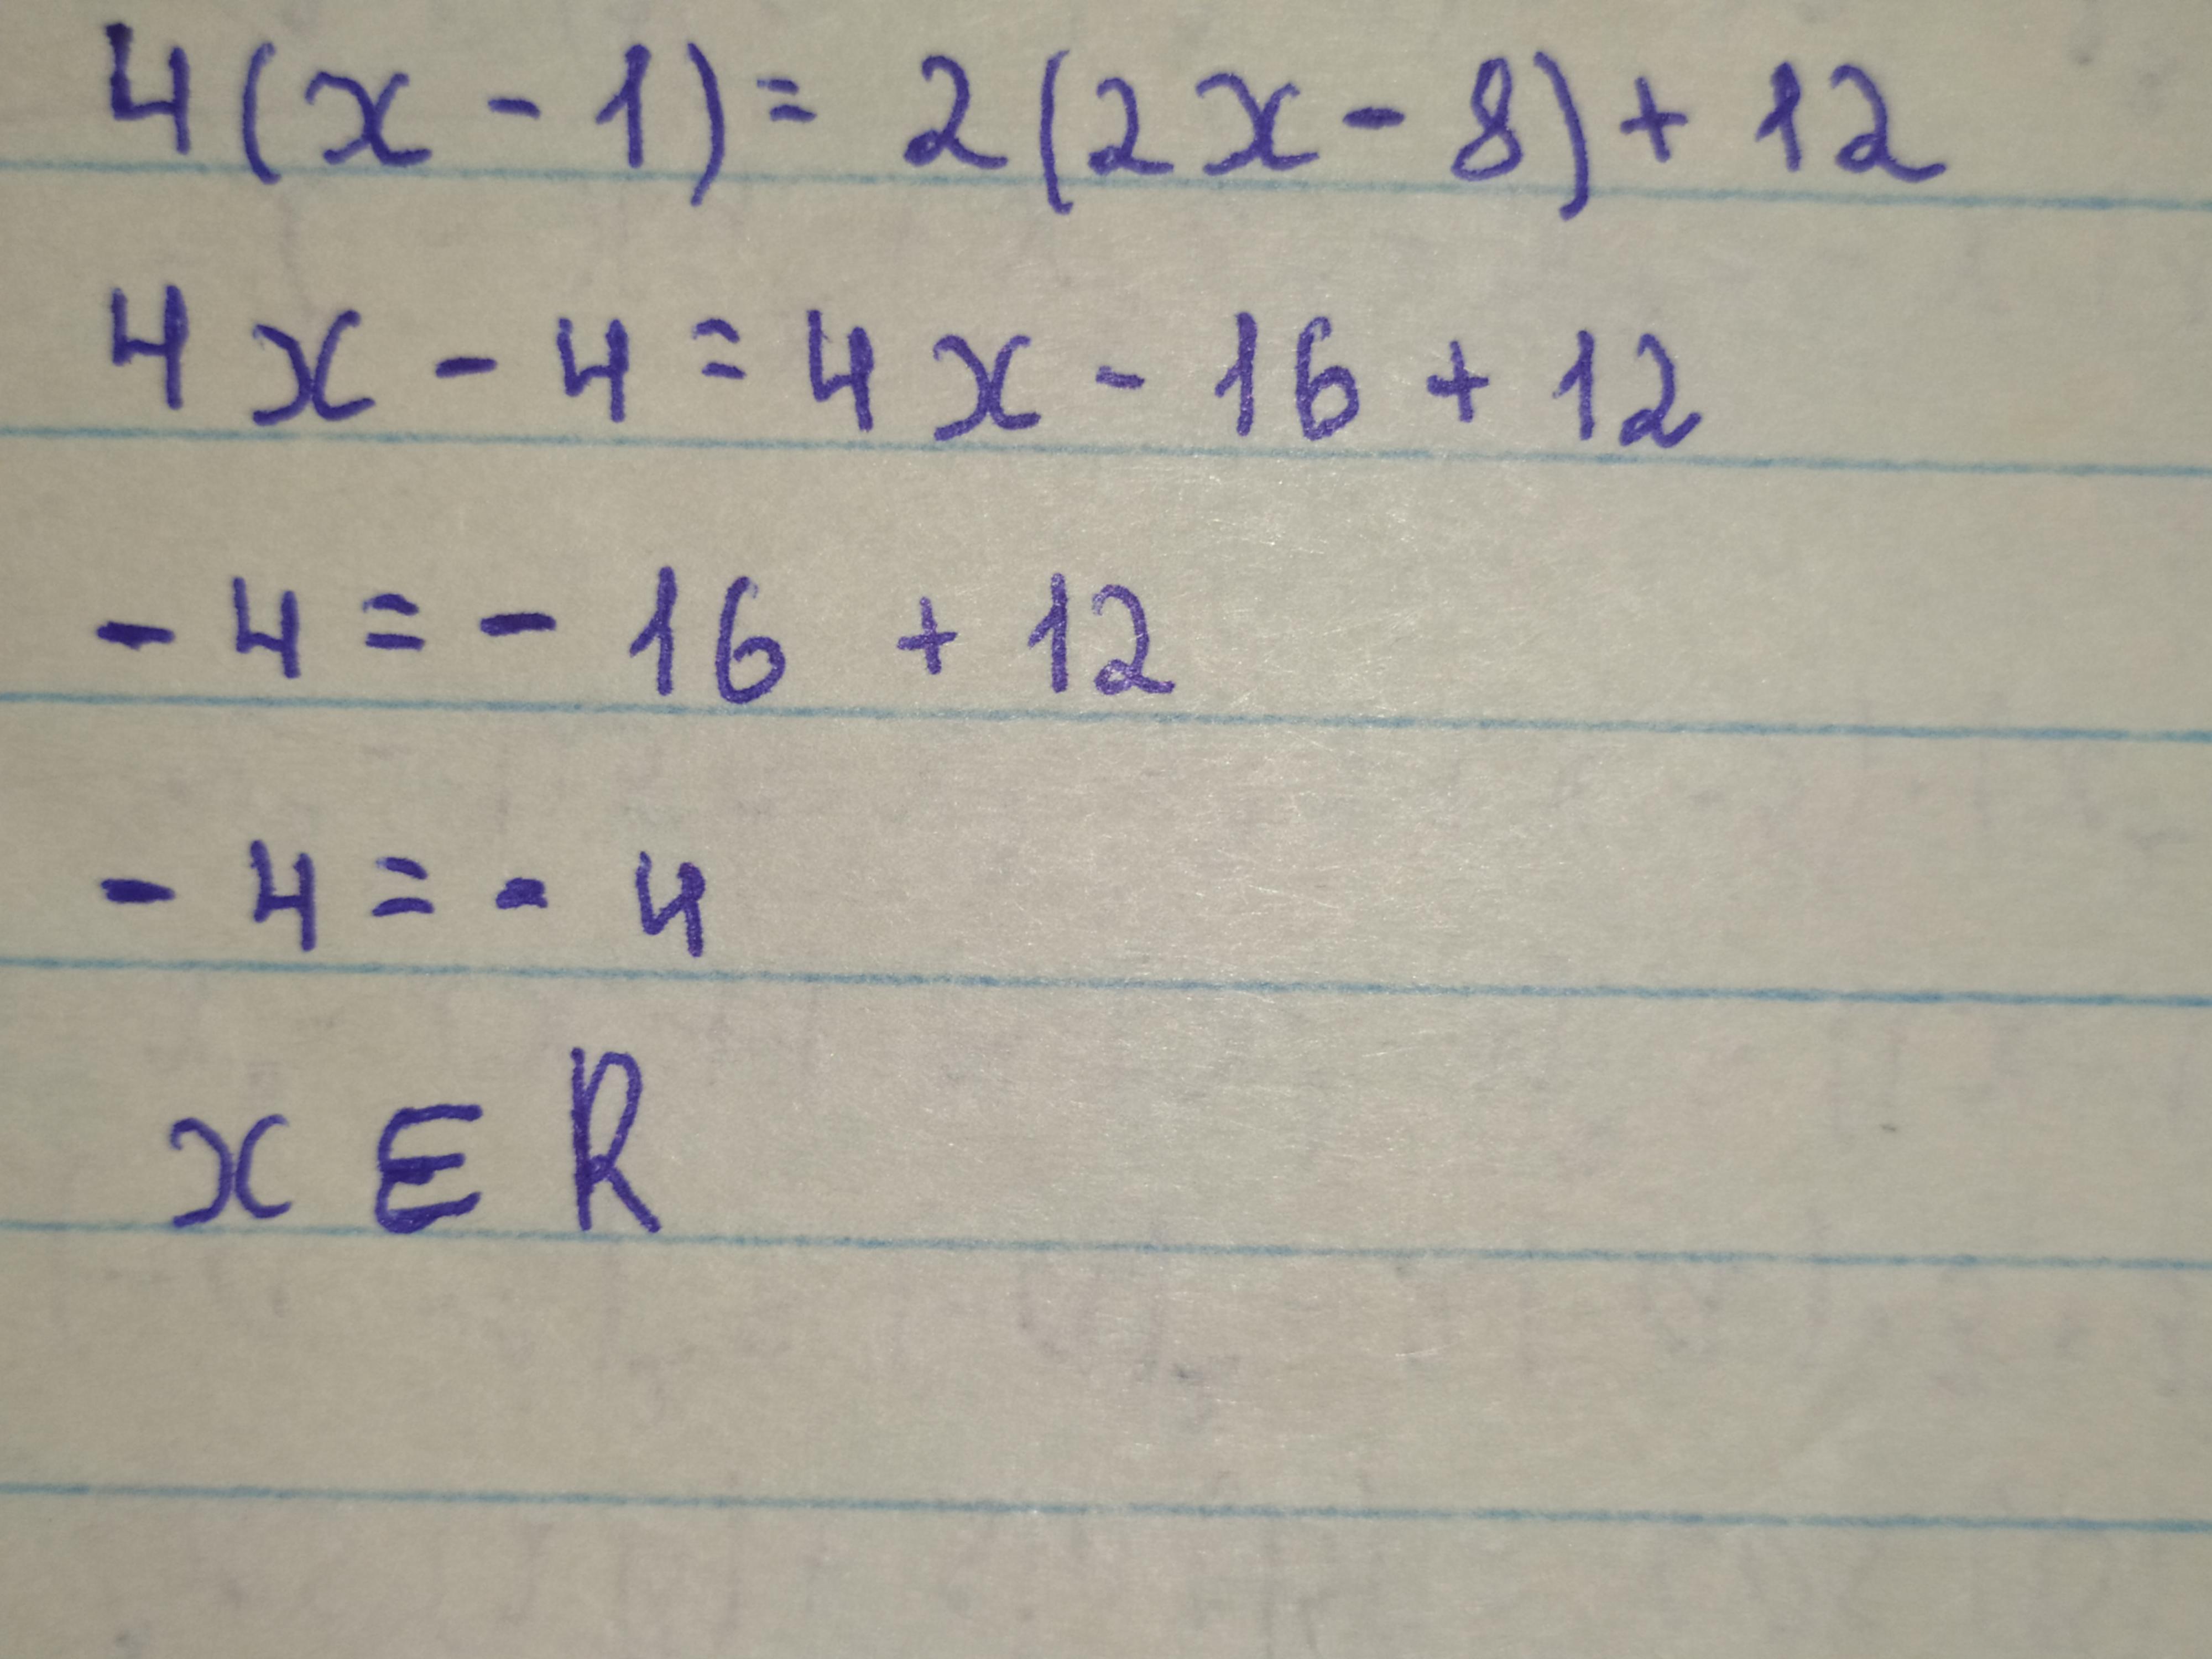 4(x - 1) = 2(2x - 8) + 12
4x - 4 = 4x - 16 + 12
- 4 = - 16 + 12
- 4 = - 4
x ∈ R